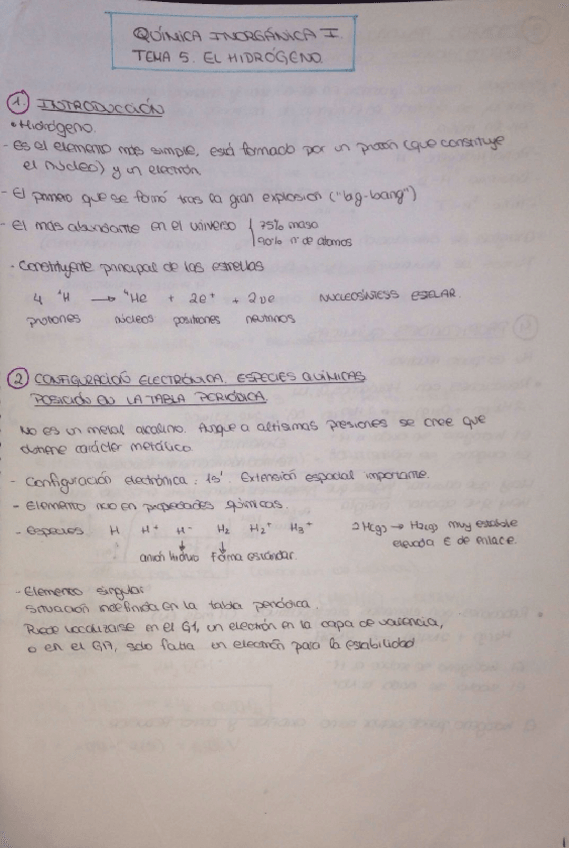 QUÍMICA INORGÁNICA I.
TEMA 5. EL HIDRÓGENO.
1. INTRODUCCIÓN
• Hidrógeno.
- Es el elemento más simple, está formado por un protón (que constituye
el núcleo) y un electrón.
- El primero que se formó tras la gran explosión ("big-bang")
- El más abundante en el universo { 75% masa
90% nº de átomos
- Constituyente principal de las estrellas
4 ¹H → ⁴He + 2e⁺ + 2νe NUCLEOSÍNTESIS ESTELAR.
protones núcleos positrones neutrinos
2 CONFIGURACIÓN ELECTRÓNICA. ESPECIES QUÍMICAS
POSICIÓN EN LA TABLA PERIÓDICA.
No es un metal alcalino. Aunque a altísimas presiones se cree que
obtiene carácter metálico.
- Configuración electrónica: 1s¹. Extensión espacial importante.
- Elemento rico en propiedades químicas.
- Especies H H⁺ H⁻ H₂ H₂⁺ H₃⁺ 2H(g) → H₂(g) muy estable
elevada E de enlace.
anión hidruro Forma estándar.
- Elemento singular
Situación indefinida en la tabla periódica.
Puede localizarse en el G1, un electrón en la capa de valencia,
o en el G17, solo falta un electrón para la estabilidad
1